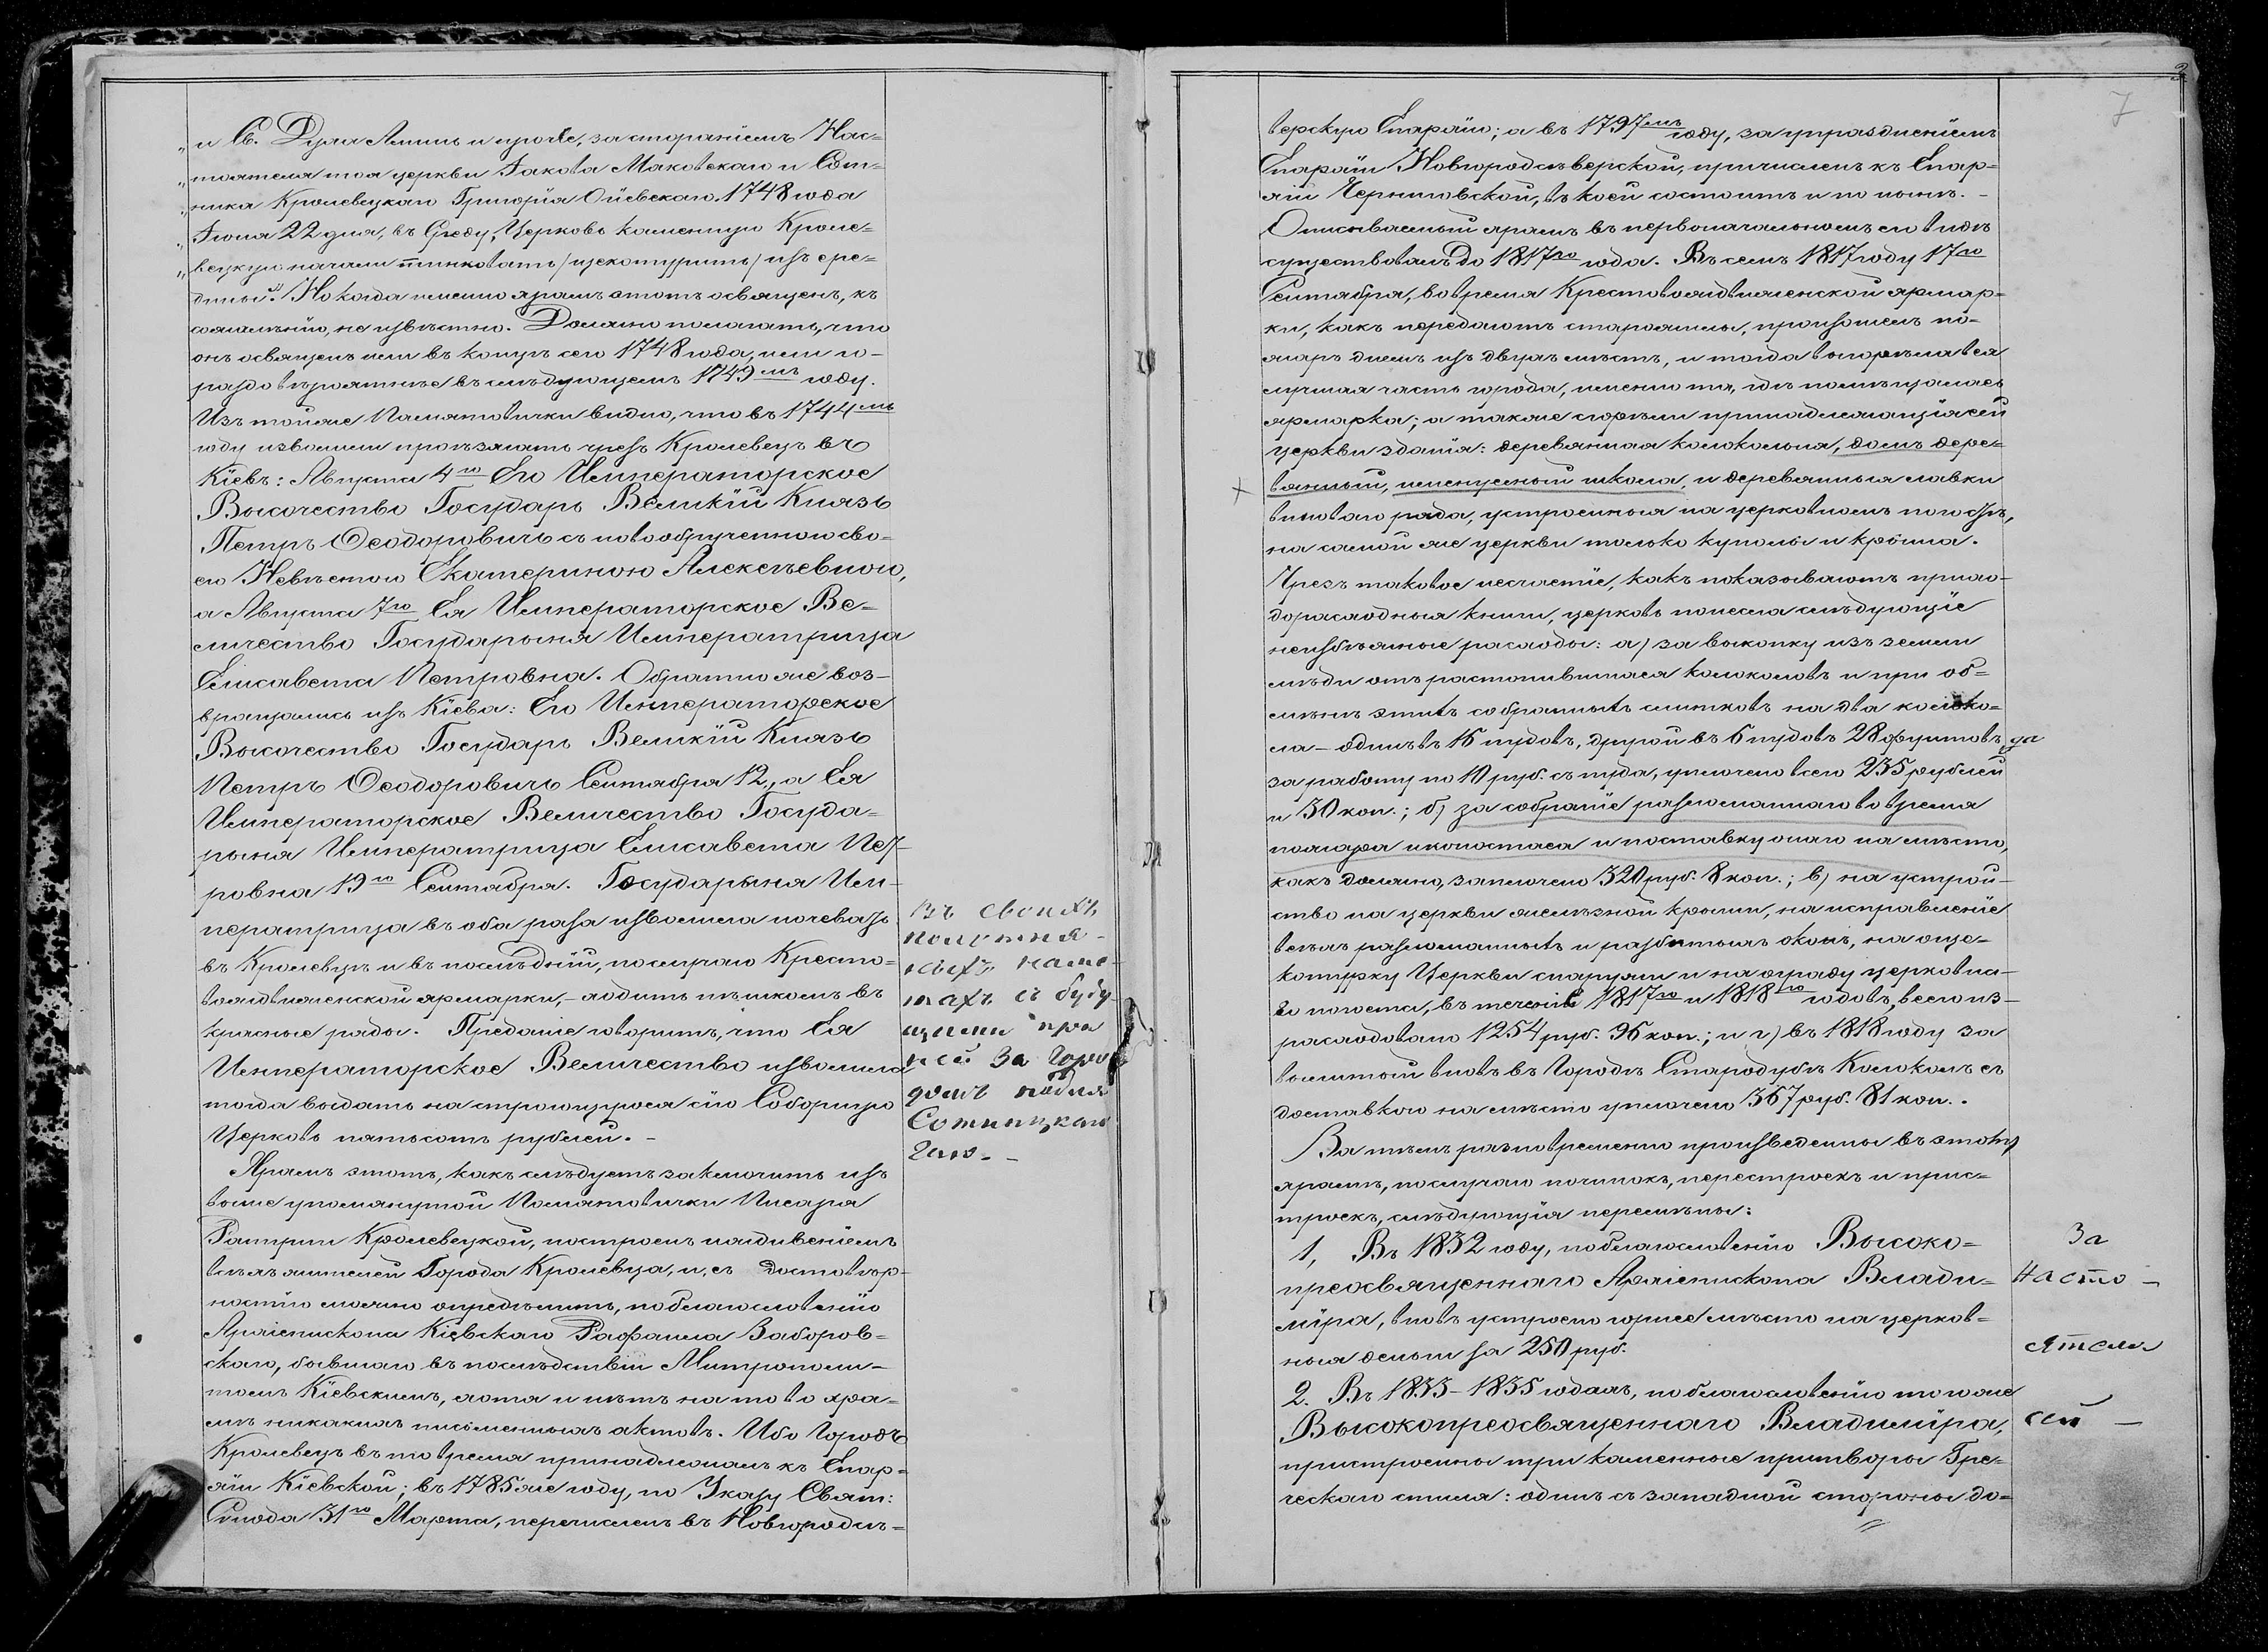 „и Св. Духа Литиъ и проче, за стораніемъ Нас=
„тоятеля тоя церкви Іакова Маковскаго и Сот=
„ника Кролевецкаго Григорія Огіевскаго. 1748 года
„Іюля 22 дня, въ Среду, Церковь каменную Кроле=
„вецкую начали тинковать /щекотурить/ изъ сре=
дины". Но когда именно храмъ этотъ освященъ, къ
сожалѣнію, не извѣстно. Должно полагать, что
онъ освященъ или въ концѣ сего 1748 года, или го=
раздо вѣроятнѣе въ слѣдующемъ 1749мъ году.
Изъ той же Памятовички видно, что въ 1744мъ
году изволили проѣзжать чрезъ Кролевецъ въ
Кіевъ: Августа 4го Его Императорское
Высочество Государь Великій Князь
Петръ Ѳеодоровичъ съ новообрученною сво=
ею Невѣстою Екатериною Алексѣевною,
а Августа 7го Ея Императорское Ве=
личество Государыня Императрица
Елисавета Петровна. Обратно же воз=
вращались изъ Кіева: Его Императорское
Высочество Государь Великій Князь
Петръ Ѳеодоровичъ Сентября 12, а Ея
Императорское Величество Госуда=
рыня Императрица Елисавета Пет=
ровна 19го Сентября. Государыня Им=
ператрица въ оба раза изволила ночевать
въ Кролевцѣ и въ послѣдній, по случаю Кресто=
воздвиженской ярмарки,– ходить пѣшкомъ въ
красные ряды. Преданіе говоритъ, что Ея
Императорское Величество изволила
тогда выдать на строющуюся сію Соборную
Церковь пятьсотъ рублей. –
въ своихъ
полотня=
ныхъ наме=
тахъ съ буду=
щими при
ней за горо=
домъ подля
Сотницкаго
гаю. –
Храмъ этотъ, какъ слѣдуетъ заключить изъ
выше упомянутой Памятовички Писаря
Ратуши Кролевецкой, построенъ иждивеніемъ
всѣхъ жителей Города Кролевца, и, съ достовѣр=
ностію можно опредѣлить, по благословенію
Архіепископа Кіевскаго Рафаила Заборов=
скаго, бывшаго въ послѣдствіи Митрополи=
томъ Кіевскимъ, хотя и нѣтъ на то во хра=
мѣ никакихъ письменныхъ актовъ. Ибо Городъ
Кролевецъ въ то время принадлежалъ къ Епар=
хіи Кіевской; въ 1785 же году, по Указу Свят:
Сѵнода 31го Марта, перечисленъ въ Новгородсѣ=
7
верскую Епархію; а въ 1797мъ году, за упраздненіемъ
Епархіи Новгородсѣверской, причисленъ къ Епар=
хіи Черниговской, въ коей состоитъ и по нынѣ. –
Описываемый храмъ въ первоначальномъ его видѣ
существовалъ до 1817го года. Въ семъ 1817 году 17го
Сентября, во время Крестовоздвиженской ярмар=
ки, какъ передаютъ старожилы, произошелъ по=
жаръ днемъ изъ двухъ мѣстъ, и тогда выгорѣла вся
лучшая часть города, именно та, гдѣ помѣщалась
ярмарка; а также сгорѣли принадлежащія сей
церкви зданія: деревянная колокольня, домъ дере=
вянный, именуемый школа, и деревянныя лавки
виноваго ряда, устроенныя на церковномъ погостѣ,
на самой же церкви только куполы и крыша.
Чрезъ таковое несчастіе, какъ показываютъ прихо=
дорасходныя книги, церковь понесла слѣдующіе
неизбѣжные расходы: а) за выкопку изъ земли
мѣди отъ растопившихся колоколовъ и при об=
мѣнѣ этихъ собранныхъ слитковъ на два колоко=
ла – одинъ въ 16 пудовъ, другой въ 6 пудовъ 28 фунтовъ, да
за работу по 10 руб. съ пуда, уплочено всего 235 рублей
и 30 коп.; б) за собраніе разломаннаго во время
пожара иконостаса и поставку онаго на мѣсто,
какъ должно, заплочено 320 руб. 8 коп.; в) на устрой=
ство на церкви желѣзной крыши, на исправленіе
всѣхъ разломанныхъ и разбитыхъ оконъ, на още=
котурку Церкви снаружи и на ограду церковна=
го погоста, въ теченіе 1817го и 1818го годовъ, всего из=
расходовано 1254 руб. 96 коп.; и г) въ 1818 году за
вылитый вновь въ Городѣ Стародубѣ Колоколъ съ
доставкою на мѣсто уплочено 367 руб. 81 коп..
За тѣмъ разновременно произведены въ этомъ
храмѣ, по случаю починокъ, перестроекъ и прис=
троекъ, слѣдующія перемѣны:
1, Въ 1832 году, по благословенію Высоко=
преосвященнаго Архіепископа Влади=
міра, вновь устроено горнее мѣсто на церков=
ныя деньги за 250 руб.
2. Въ 1833–1835 годахъ, по благословенію того же
Высокопреосвященнаго Владиміра,
пристроены три каменные притворы Гре=
ческаго стиля: одинъ съ западной стороны до=
За
Насто –
ятеля
сей –